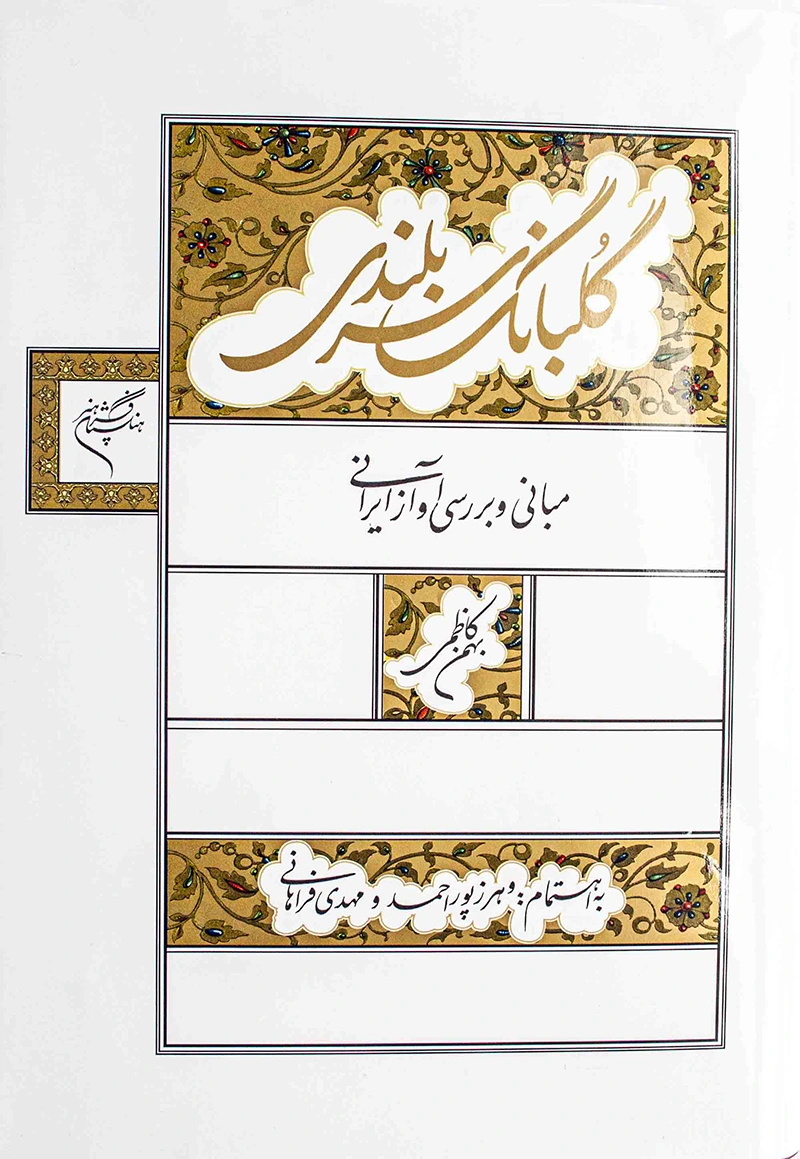 گلبانگ سربلندی
مبانی و بررسی آواز ایرانی
بهمن کاظمی
به اهتمام: وهرز پوراحمد و مهدی فراهانی
فرهنگستان هنر